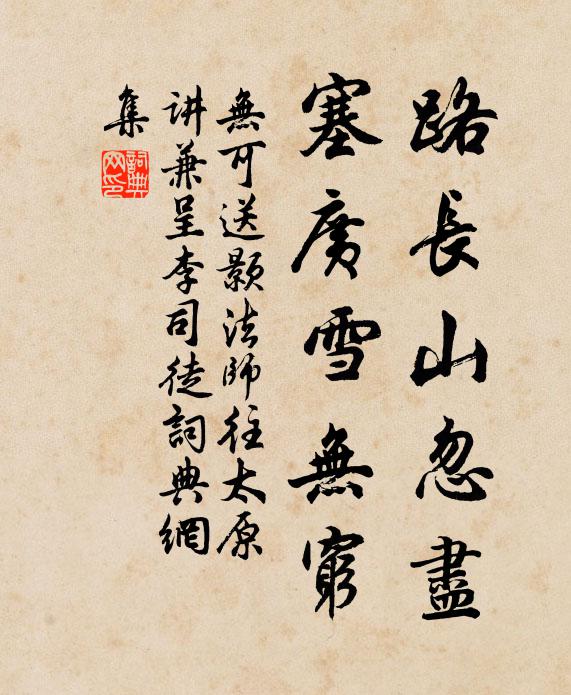 路長山忽盡
塞廣雪無窮
無可送顥法師往太原
讲兼呈李司徒詞典網
集
詞典網印